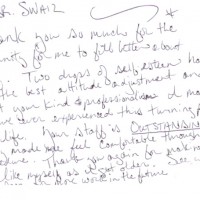 r. SWAIZ
ank you so much for the
nity for me to feel better about
. Two drops of self esteem ha
the last attitude adjustment an
t your kind & professional
ever experienced this turning p
life. Your staff is OUTSTANDING
made me feel comfortable through
edure. Thank you again for
like myself as I get older. See
for more work in the future